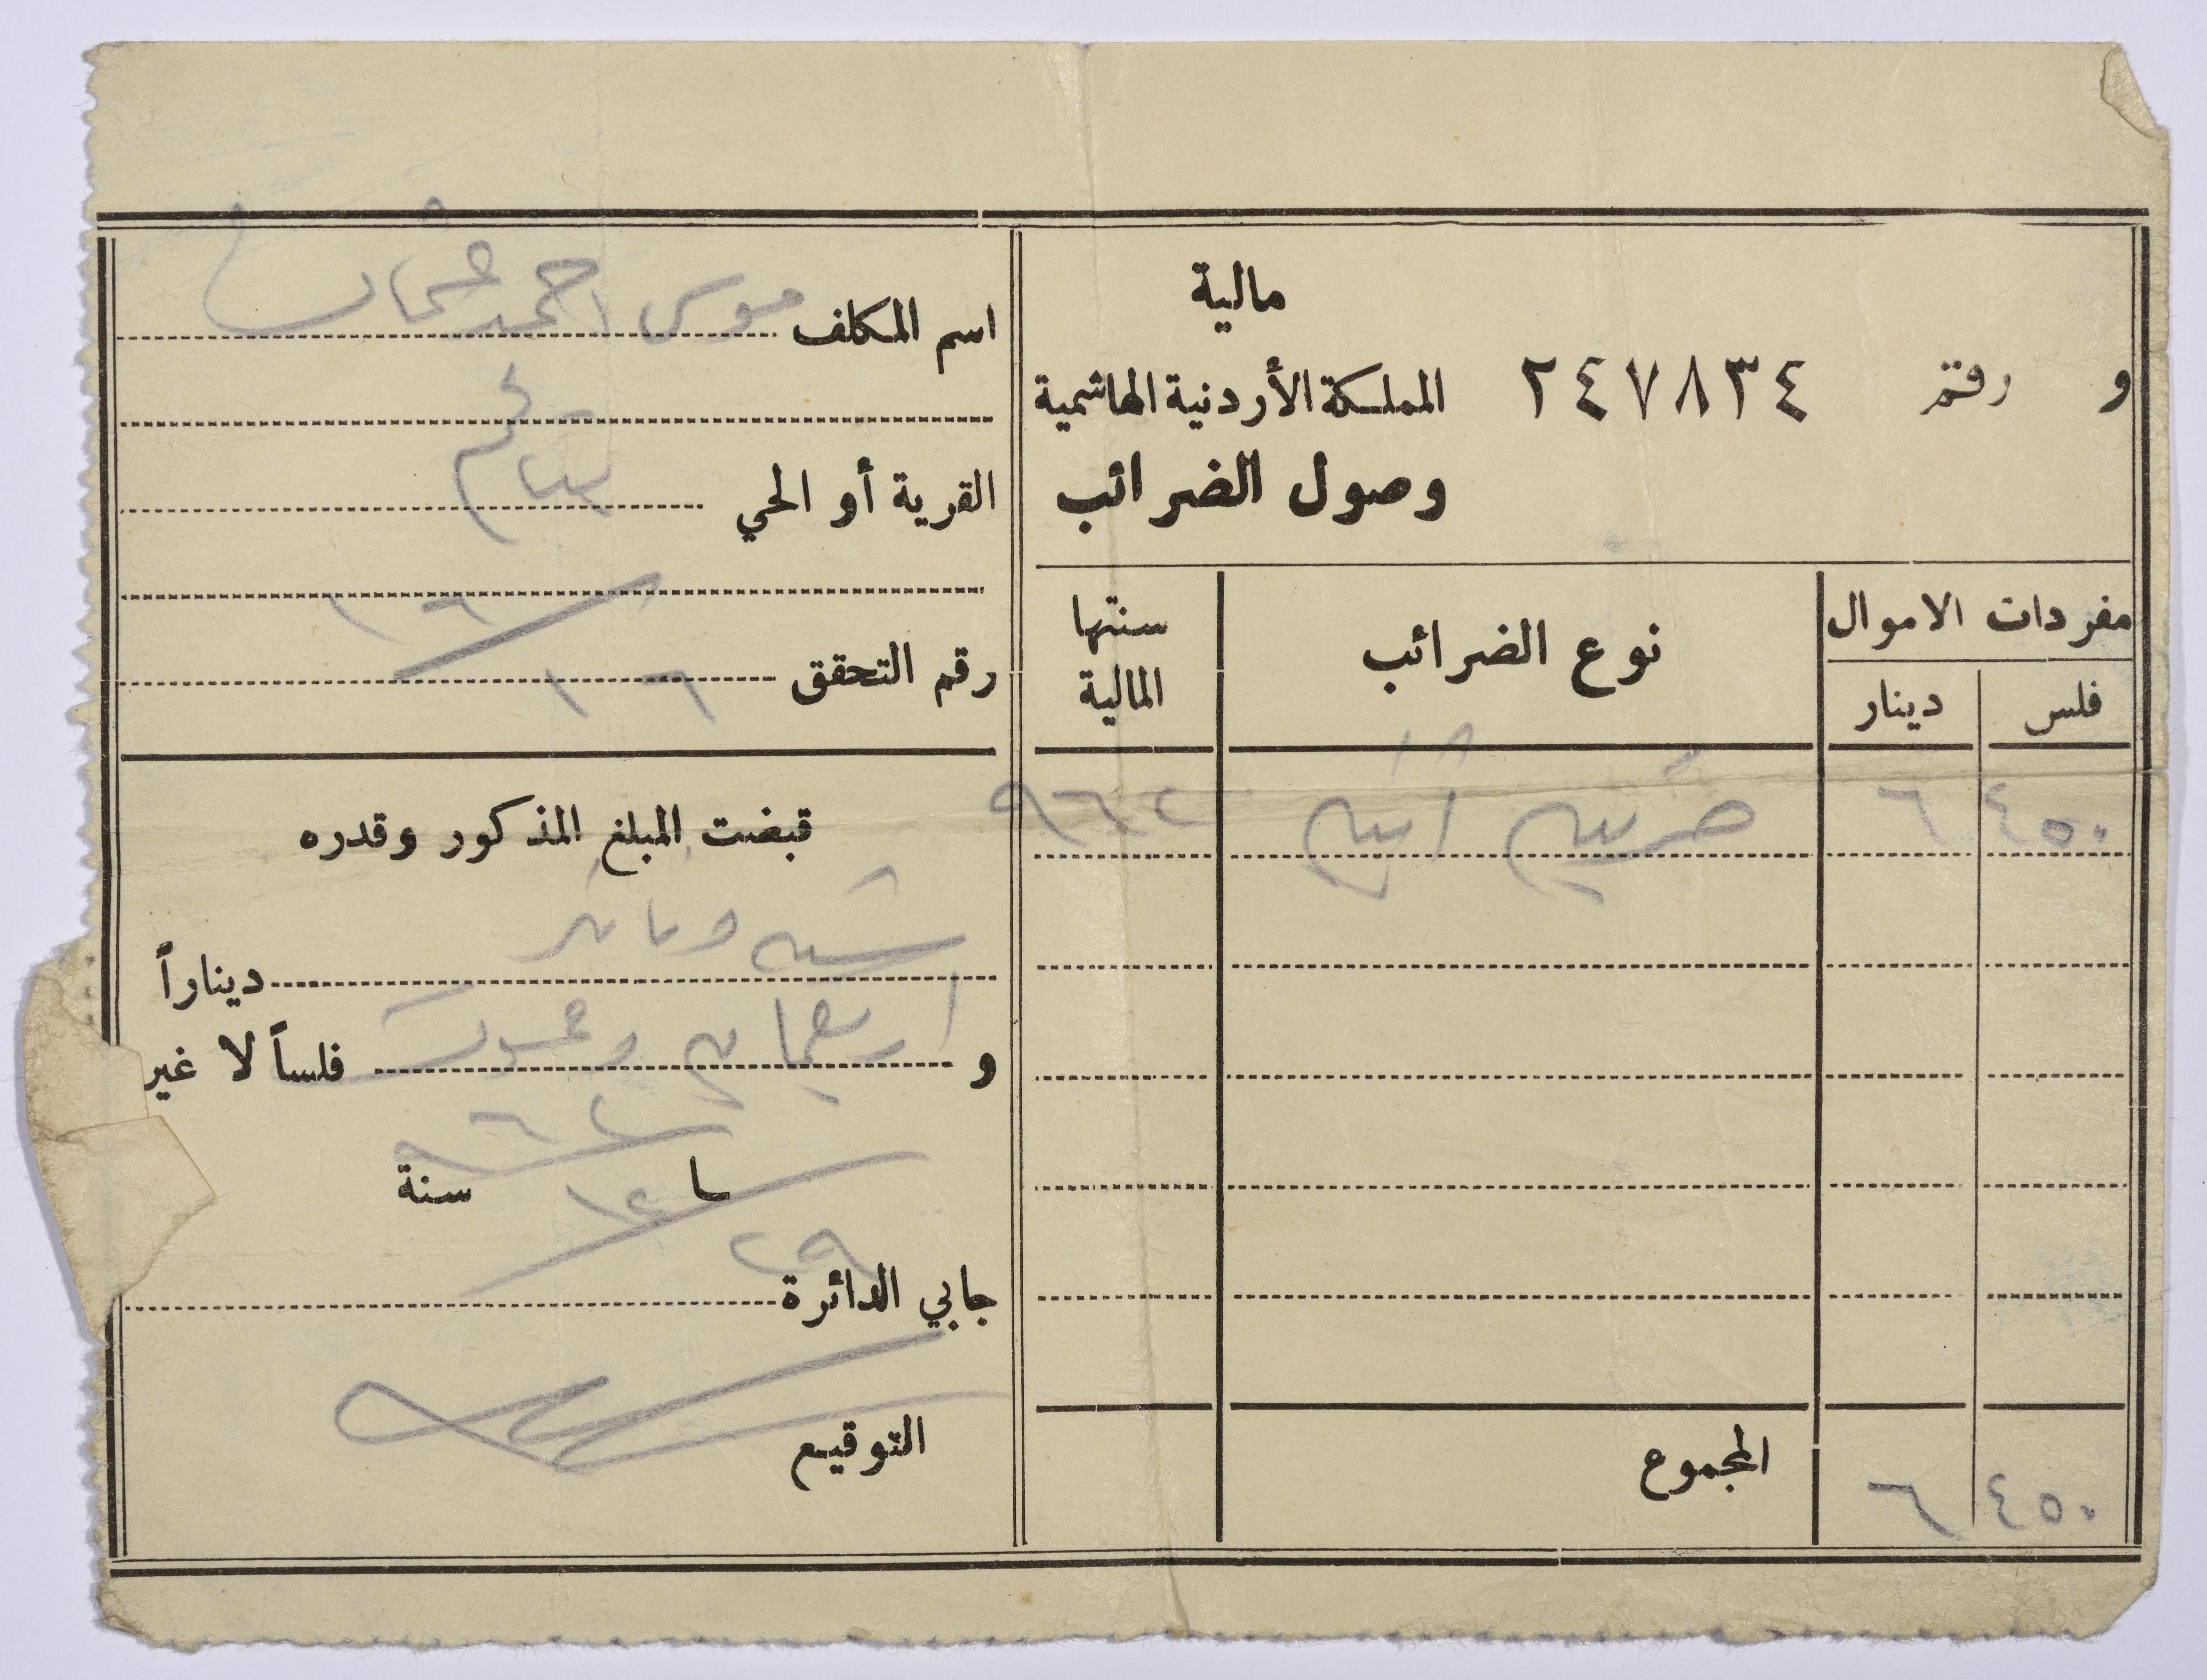 مالية
و رقم ٢٤٧٨٣٤ المملكة الأردنية الهاشمية
وصول الضرائب
مفردات الاموال نوع الضرائب سنتها المالية
فلس دينار
٤٥٠ ٦ ضريبة ٩٦٢
المجموع
٤٥٠ ٦
اسم المكلف موسى احمد عثمان
القرية أو الحي
رقم التحقق ١٦ / ١٦
قبضت المبلغ المذكور وقدره
ستة دنانير ديناراً
و اربعماية وخمسون فلساً لا غير
٢٩ / ١٢ / ٩٦٢ سنة
جابي الدائرة
التوقيع